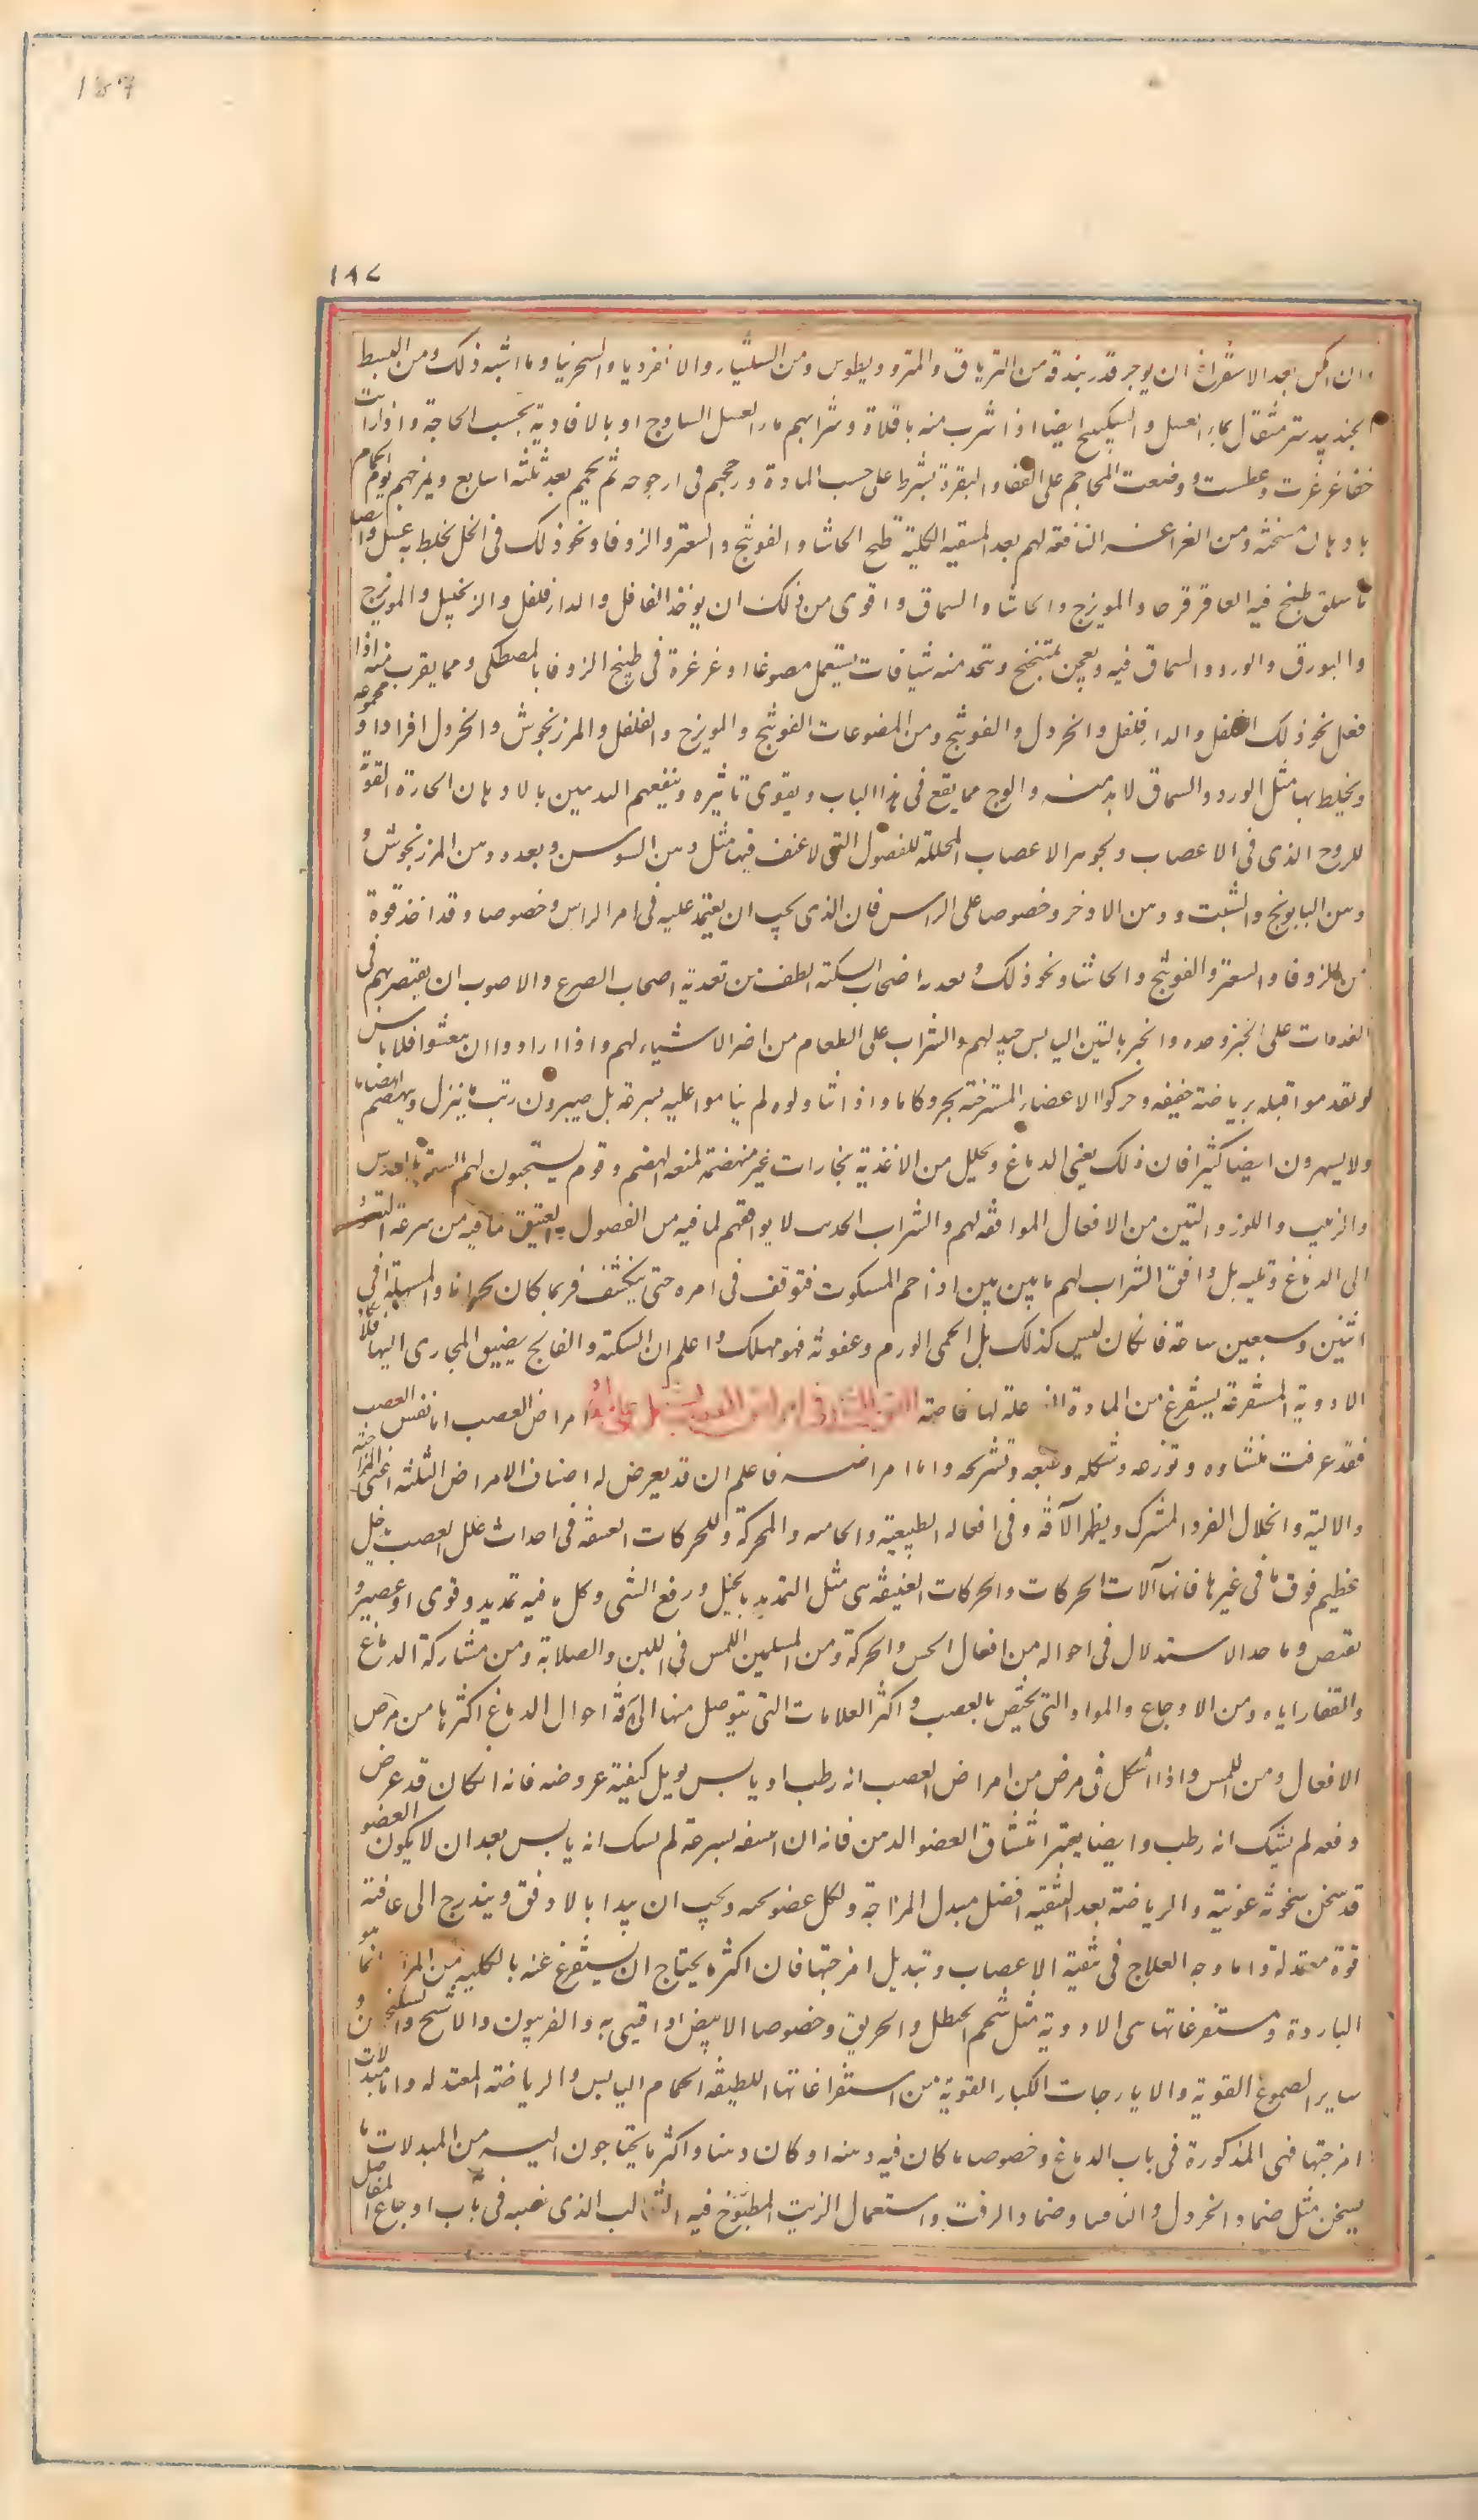 187
١٨٧
وان امكن بعد الاستفراغ ان يوجر قدر بندقة من الترياق والمثرودیطوس ومن السلثيار والانفرديا والسجزنيا وما اشبه ذلك ومن البسيط
الجندبیدستر مثقال بماء العسل والسكبينج ايضا اذا شرب منه باقلاة وشرابهم ماء العسل الساذج او بالافاوية بحسب الحاجة واذا رايت
خفا غرغرت وعطست ووضعت المحاجم على القفا والنقرة بشرط على حسب المادة ورجحهم فى ارجوحه ثم يحمم بعد ثلثه اسابيع ويمرخهم يوم الحمام
بادهان مسخنه ومن الغراغر النافعة لهم بعد التنقيه الكلية طبخ الحاشا والفوتنج والسعتر والزوفا ونحو ذلك فى الخل يخلط به عسل وايضا
ما سلق طبخ فيه العاقرقرحا والمويزج والحاشا والسماق واقوى من ذلك ان يوخذ الفلفل والدارفلفل والزنجبيل والمويزج
والبورق والورد والسماق فيه ويعجن بميبختج ويتخذ منه شيافات يستعمل مضوغا او غرغرة فى طبيخ الزوفا بالمصطكى ومما يقرب منه اذا
فعل نحو ذلك الفلفل والدارفلفل والخردل والفوتنج ومن المضوعات الفوتنج والمويزج والفلفل والمرزنجوش والخردل افرادا ومجموعه
ويخلط بها مثل الورد والسماق لابد منه والوج مما يقع فى هذا الباب ويقوى تاثيره وينفعهم التدهين بالادهان الحارة المقوية
للروح الذى فى الاعصاب ولجوهر الاعصاب المحللة للفضول التى لا عنف فيها مثل دهن السوسن وبعده دهن المرزنجوش و
دهن البابونج والشبت ودهن الاذخر وخصوصا على الراس فان الذى يجب ان يعتمد عليه فى امر الراس وخصوصا وقد اخذ قوة
من الزوفا والسعتر والفوتنج والحاشا ونحو ذلك وتغذية اصحاب السكتة الطف من تغذية اصحاب الصرع والاصوب ان يقتصر بهم فى
الغدوات على الخبز وحده والخبز بالتين اليابس جيد لهم والشراب على الطعام من اضر الاشياء لهم واذا ارادوا ان يتعشوا فلا باس
لو تقدموا قبله برياضة خفيفه وحركوا الاعضاء المسترخية تحريكا ما واذا تناولوه لم يناموا عليه بسرعة بل يصبرون ريث ما ينزل وينهضم انهضاما
ولا يسهرون ايضا كثيرا فان ذلك يعيى الدماغ ويحلل من الاغذية بخارات غير منهضمة لمنعه الهضم وقوم يستحبون لهم الشعير بالعدس
والزبيب واللوز والتين من الافعال الموافقة لهم والشراب الحديث لا يوافقهم لما فيه من الفضول والعتيق لما فيه من سرعة النفوذ
الى الدماغ وتمليه بل اوفق الشراب لهم ما بين بين اذا حم المسكوت فتوقف فى امره حتى ينكشف فربما كان بحرانا والمسهلة فى
اثنين وسبعين ساعة فان كان ليس كذلك بل الحمى لورم وعفونة فهو مهلك واعلم ان السكتة والفالج يضيق المجارى اليها
الادوية المستفرغة يستفرغ من المادة علة لها خاصة الفن فى امراض العصب امراض العصب اما نفس العصب
فقد عرفت منشاه وتوزعه وشكله وطبعه وتشريحه واما امراضه فاعلم ان قد يعرض له اصناف الامراض الثلثه اعنى المزاجيه
والالية وانحلال الفرد المشترك ويظهر الآفة فى افعاله الطبيعية والحاسه والمحركة وللحركات العنيفة فى احداث علل العصب دخل
عظيم فوق ما فى غيرها فانها آلات الحركات والحركات العنيفة هى مثل التمديد بالحبل ورفع الشى وكل ما فيه تمديد قوى او عصر و
تقبض وماخذ الاستدلال فى احواله من افعال الحس والحركة ومن الملمس فى اللين والصلابة ومن مشاركة الدماغ
والفقار اياه ومن الاوجاع والمواد التى يختص بالعصب واكثر العلامات التى يتوصل منها الى معرفة احوال الدماغ اكثرها من مرض
الافعال ومن اللمس واذا اشكل فى مرض من امراض العصب انه رطب او يابس تومل كيفية عروضه فانه ان كان قد عرض
دفعه لم يشك انه رطب وايضا يعتبر انتشاف العضو الدهن فانه ان نشفه بسرعة لم يشك انه يابس بعد ان لا يكون العضو
قد سخن سخونه غريبة والرياضة بعد التنقيه افضل مبدل المزاجه ولكل عضو بحسبه ويجب ان يبدا بالاوفق ويتدرج الى مافيه
قوة معتدلة واما وجه العلاج فى تنقية الاعصاب وتبديل امزجتها فان اكثره يحتاج ان يستفرغ عنه بالكلية من المواد انما هو
الباردة ومستفرغاتها هى الادوية مثل شحم الحنظل والخربق وخصوصا الابيض اذا قيى به والفربيون والاشج والسكبينج و
ساير الصموغ القوية والايارجات الكبار القوية من استفراغاتها اللطيفة الحمام اليابس والرياضة المعتدله واما مبدلات
امزجتها فهى المذكورة فى باب الدماغ وخصوصا ما كان فيه دهنه او كان دهنا واكثر ما يحتاجون اليه من المبدلات ما
يسخن مثل ضماد الخردل والثافسيا وضماد الزفت واستعمال الزيت المطبوخ فيه الثعالب الذى نصفه فى باب اوجاع المفاصل